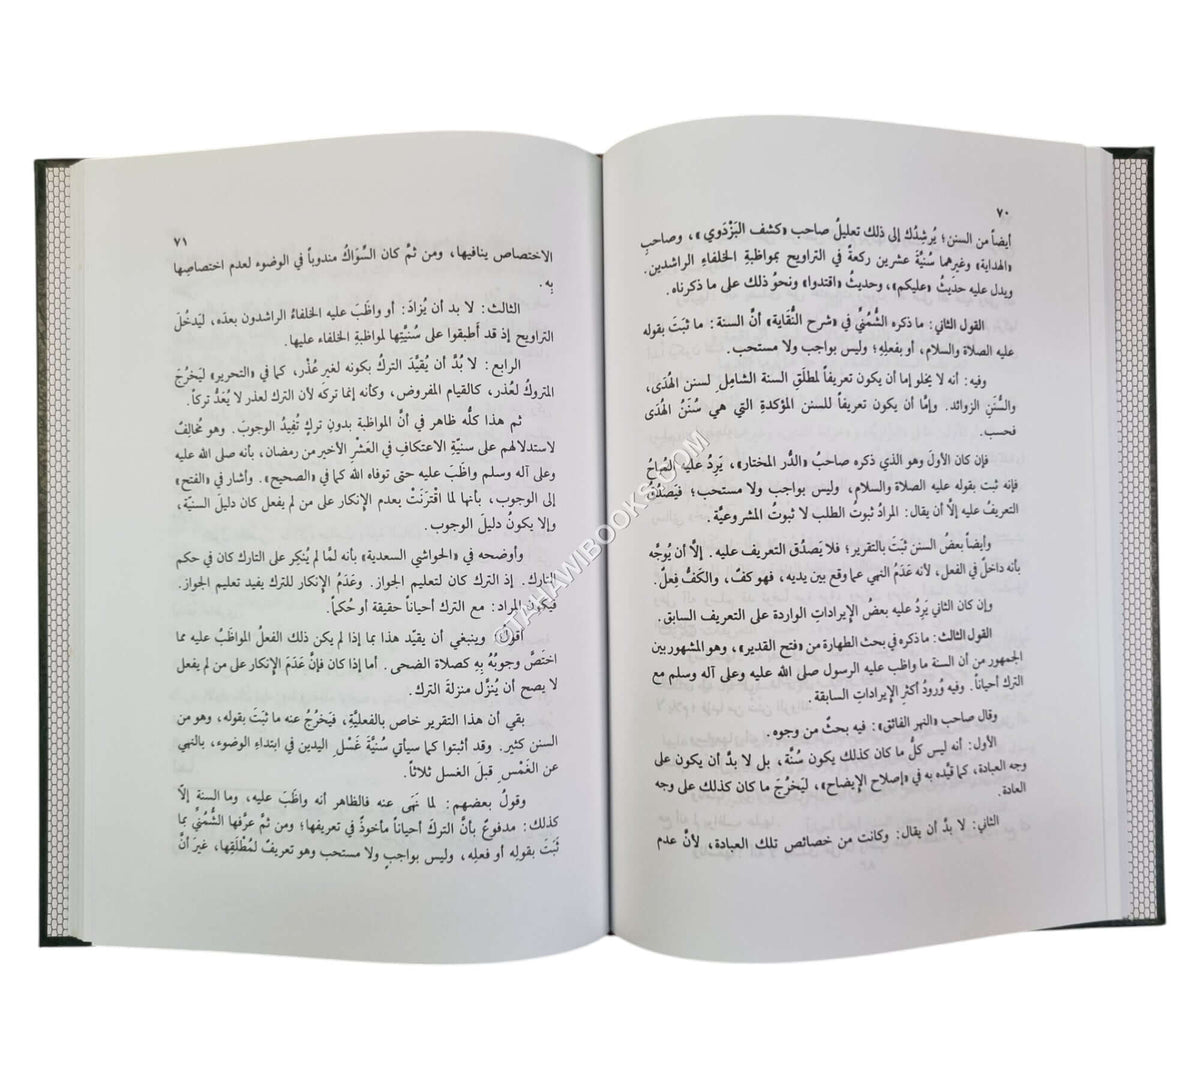 ٧٠
أيضاً من السنن؛ يُرشِدُك إلى ذلك تعليلُ صاحب «كشف البَزْدَوي»، وصاحبِ
«الهداية» وغيرهما سُنيَّةَ عشرين ركعةً في التراويح بمواظبةِ الخلفاءِ الراشدين.
ويدل عليه حديثُ «عليكم»، وحديثُ «اقتدوا» ونحوُ ذلك على ما ذكرناه.
القول الثاني: ما ذكره الشُّمُنِّيُّ في «شرح النُّقَاية» أنَّ السنة: ما ثَبَتَ بقوله
عليه الصلاة والسلام، أو بفعلِهِ؛ وليس بواجب ولا مستحب.
وفيه: أنه لا يخلو إما أن يكون تعريفاً لمطلَقِ السنة الشاملِ لسنن الهُدَى،
والسُّنَنِ الزوائد. وإمَّا أن يكون تعريفاً للسنن المؤكدةِ التي هي سُنَنُ الهُدَى
فحسب.
فإن كان الأولَ وهو الذي ذكره صاحبُ «الدُّر المختار»، يَرِدُ عليه المُبَاحُ
فإنه ثبت بقوله عليه الصلاة والسلام، وليس بواجب ولا مستحب؛ فيَصْدُقُ
التعريفُ عليه إلَّا أن يقال: المرادُ ثبوتُ الطلب لا ثبوتُ المشروعيَّة.
وأيضاً بعضُ السنن ثبَتَ بالتقرير؛ فلا يَصدُق التعريف عليه. إلَّا أن يُوجَّه
بأنه داخلٌ في الفعل، لأنه عَدَمُ النهي عما وقع بين يديه، فهو كفٌ، والكَفُّ فِعلٌ.
وإن كان الثاني يَرِدُ عليه بعضُ الإيراداتِ الواردة على التعريف السابق.
القول الثالث: ما ذكره في بحث الطهارة من «فتح القدير»، وهو المشهور بين
الجمهور من أن السنة ما واظب عليه الرسول صلى الله عليه وعلى آله وسلم مع
الترك أحياناً. وفيه وُرودُ أكثرِ الإيراداتِ السابقة.
وقال صاحب «النهر الفائق»: فيه بحثٌ من وجوه.
الأول: أنه ليس كلُّ ما كان كذلك يكون سُنَّة، بل لا بدَّ أن يكون على
وجه العبادة، كما قيَّده به في «إصلاح الإيضاح»، ليَخرُجَ ما كان كذلك على وجه
العادة.
الثاني: لا بدَّ أن يقال: وكانت من خصائص تلك العبادة، لأنَّ عدم
٧١
الاختصاص ينافيها، ومن ثمَّ كان السِّوَاكُ مندوباً في الوضوء لعدم اختصاصِها
بِهِ.
الثالث: لا بد أن يُزادَ: أو واظَبَ عليه الخلفاءُ الراشدون بعدَه، ليَدخُلَ
التراويح إذ قد أَطبقوا على سُنيَّتِها لمواظبةِ الخلفاء عليها.
الرابع: لا بُدَّ أن يُقيَّد التركُ بكونه لغيرِ عُذْر، كما في «التحرير» ليَخرُجَ
المتروكُ لعُذر، كالقيام المفروض، وكأنه إنما تركَه لأن التركَ لعذر لا يُعَدُّ تركاً.
ثم هذا كلُّه ظاهر في أنَّ المواظبة بدونِ تركٍ تُفيدُ الوجوبَ. وهو مُخالِفٌ
لاستدلالهم على سنيَّةِ الاعتكاف في العَشْرِ الأخير من رمضان، بأنه صلى الله عليه
وعلى آله وسلم واظَبَ عليه حتى توفاه الله كما في «الصحيح». وأشار في «الفتح»
إلى الوجوب، بأنها لما اقتَرَنَتْ بعدم الإنكار على من لم يفعل كان دليلَ السنيَّة،
وإلا يكونُ دليلَ الوجوب.
وأوضحه في «الحواشي السعدية» بأنه لمَّا لم يُنكِر على التارك كان في حكم
التارك. إذ الترك كان لتعليم الجواز. وعَدَمُ الإنكار للترك يفيد تعليم الجواز.
فيكون المراد: مع الترك أحياناً حقيقة أو حُكماً.
أقولُ: وينبغي أن يقيَّد هذا بما إذا لم يكن ذلك الفعلُ المواظَبُ عليه مما
اختَصَّ وجوبُهُ بِهِ كصلاة الضحى. أما إذا كان فإنَّ عَدَمَ الإنكار على من لم يفعل
لا يصح أن يُنزَّل منزلةَ الترك.
بقي أن هذا التقرير خاص بالفعليَّةِ، فيَخرُجُ عنه ما ثَبَتَ بقوله، وهو من
السنن كثير. وقد أثبتوا كما سيأتي سُنيَّةَ غَسْلِ اليدين في ابتداءِ الوضوء، بالنهي
عن الغَمْسِ قبلَ الغسل ثلاثاً.
وقولُ بعضهم: لما نَهَى عنه فالظاهر أنه واظَبَ عليه، وما السنة إلَّا
كذلك: مدفوعٌ بأنَّ التركَ أحياناً مأخوذٌ في تعريفها؛ ومن ثمَّ عرَّفها الشُّمُنِّيُّ بما
ثَبَتَ بقولِه أو فعلِه، وليس بواجبٍ ولا مستحب وهو تعريفٌ لمُطْلَقِها، غيرَ أنَّ
©TAHAWIBOOKS.COM